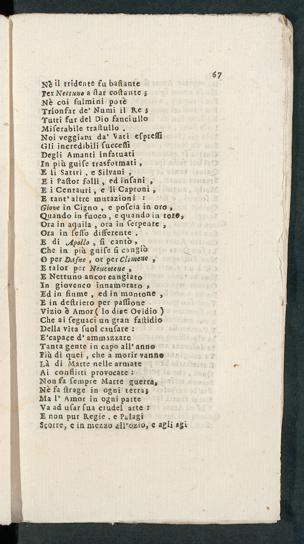 67
Nè il tridente fu bastante
Per Nettuno a star costante;
Nè coi fulmini potè
Trionfar de' Numi il Re;
Tutti fur del Dio fanciullo
Miserabile trastullo.
Noi veggiam da' Vati espressi
Gli incredibili successi
Degli Amanti infatuati
In più guise trasformati,
E li Satiri, e Silvani,
E i Pastor folli, ed insani,
E i Centauri, e li Caproni,
E tant' altre mutazioni:
Giove in Cigno, e poscia in oro,
Quando in fuoco, e quando in toro,
Ora in aquila, ora in serpente,
Ora in sesso differente.
E di Apollo, si cantò,
Che in più guise si cangiò
O per Dafne, or per Climene,
E talor per
E Nettuno ancor cangiato
In giovenco innamorato,
Ed in fiume, ed in montone,
E in destriero per passione.
Vizio è Amor (lo dice Ovidio)
Che ai seguaci un gran fastidio
Della vita suol causare:
E' capace d' ammazzare
Tanta gente in capo all' anno
Più di quei, che a morir vanno
Là di Marte nelle armate
Ai conflitti provocate:
Non fa sempre Marte guerra,
Nè fa strage in ogni terra;
Ma l' Amor in ogni parte
Va ad usar sua crudel arte:
E non pur Regie, e Palagi
Scorre, e in mezzo all' ozio, e agli agi